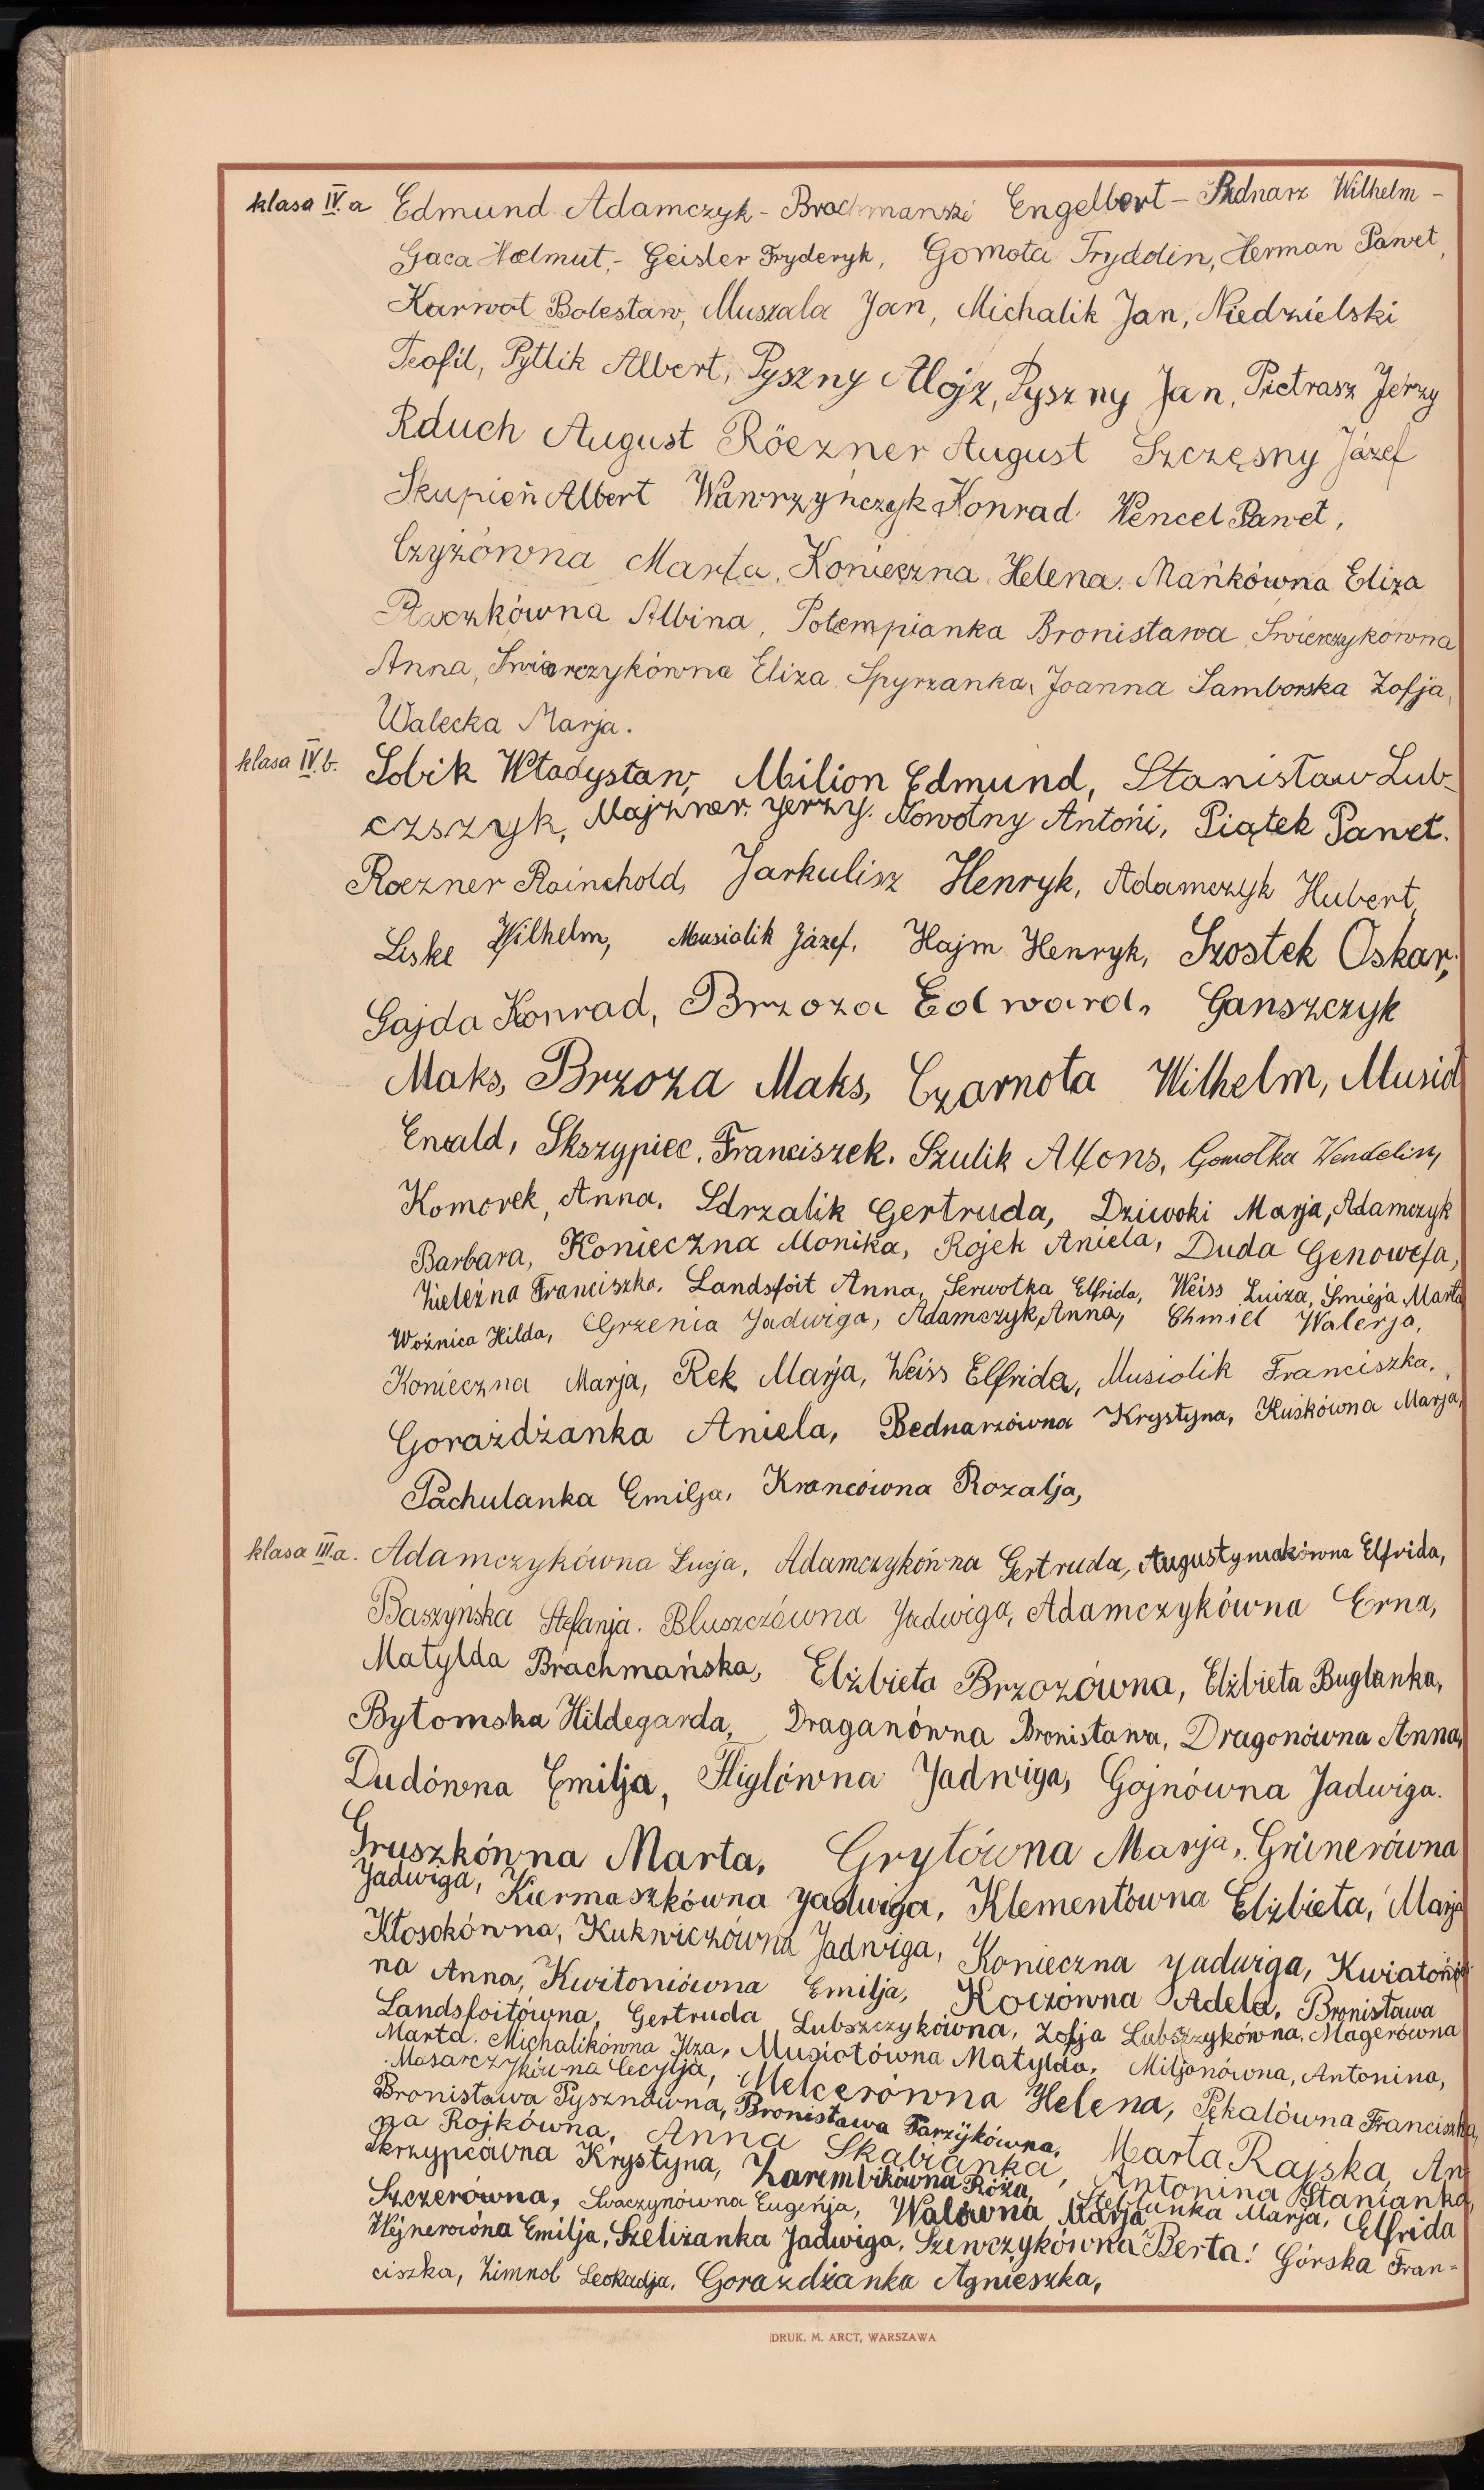 klasa IV. a Edmund Adamczyk - Brachmanski Engelbert - Bednarz Wilhelm -
Gaca Helmut, - Geisler Fryderyk, Gomoła Fryddin, Herman Paweł,
Karwot Bolesław, Muszala Jan, Michalik Jan, Niedzielski
Teofil, Pytlik Albert, Pyszny Alojz, Pyszny Jan, Pietrasz Jerzy
Rduch August Röezner August Szczęsny Józef
Skupień Albert Wawrzyńczyk Konrad Wencel Paweł,
Czyżówna Marta, Konieczna Helena. Mańkówna Eliza
Płaczkówna Albina, Potempianka Bronisława Świerczykówna
Anna, Świerczykówna Eliza Spyrzanka, Joanna Samborska Zofja,
Walecka Marja.
klasa IV. b. Sobik Władysław, Milion Edmund, Stanisław Lub-
czszyk, Majzner Jerzy. Nowotny Antońi, Piątek Paweł.
Roezner Rainchold, Jarkulisz Henryk, Adamczyk Hubert,
Liske Wilhelm, Musiolik Józef, Hajm Henryk, Szostek Oskar,
Gajda Konrad, Brzoza Edward, Ganszczyk
Maks, Brzoza Maks, Czarnota Wilhelm, Musioł
Ewald, Skszypiec, Franciszek. Szulik Alfons, Gomołka Wendelin,
Komorek, Anna. Sdrzalik Gertruda, Dziwoki Marja, Adamczyk
Barbara, Konieczna Monika, Rojek Aniela, Duda Genowefa,
Zieleźna Franciszka. Landsfoit Anna, Serwotka Elfrida, Weiss Luiza, Śmieja Marta
Woźnica Hilda, Grzenia Jadwiga, Adamczyk, Anna, Chmiel Walerja,
Konieczna Marja, Rek Marja, Weiss Elfrida, Musiolik Franciszka,
Gorażdżanka Aniela, Bednarzówna Krystyna, Kuśkówna Marja,
Pachulanka Emilja, Krancówna Rozalja,
klasa III. a. Adamczykówna Łucja, Adamczykówna Gertruda, Augustyniakówna Elfrida,
Baszyńska Stefanja. Bluszczówna Jadwiga, Adamczykówna Erna,
Matylda Brachmańska, Elżbieta Brzozówna, Elżbieta Buglanka,
Bytomska Hildegarda, Draganówna Bronisława, Dragonówna Anna,
Dudówna Emilja, Fliglówna Jadwiga, Gojnówna Jadwiga.
Gruszkówna Marta, Grytówna Marja, Grünerówna
Jadwiga, Kiermaszkówna Jadwiga, Klementówna Elżbieta, Marja
Kłosokówna, Kukwiczówna Jadwiga, Konieczna Jadwiga, Kwiatoń
na Anna, Kwitoniówna Emilja, Koczówna Adela, Bronisława
Landsfoitówna, Gertruda Lubszczykówna, Zofja Lubszczykówna, Magerówna
Marta. Michalikówna Ilza, Musiołówna Matylda, Miljonówna, Antonina,
Masarczykówna Cecylja, Melcerówna Helena, Pękalówna Franciszka,
Bronisława Pysznówna, Bronisława Parzÿkówna, Marta Rajska, An
na Rojkówna, Anna Skabianka, Antonina Stanianka,
Skrzypcówna Krystyna, Zarembikówna Róża, Marja, Elfrida
Szczerówna, Swaczynówna Eugeńja, Walówna Marja
Wÿnerowóna Emilja, Szeliżanka Jadwiga, Szewczykówna Berta! Górska Fran=
ciszka, Zimnol Leokadja, Gorażdżanka Agnieszka,
DRUK. M. ARCT, WARSZAWA